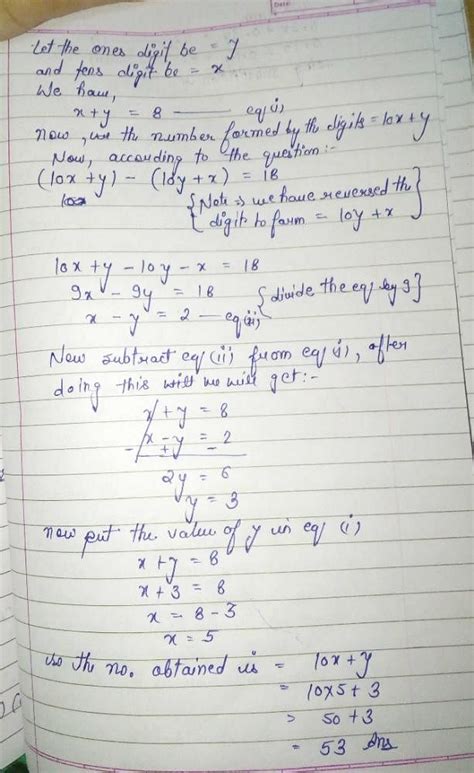 Let the ones digit be = y
and tens digit be = x
We have,
x + y = 8 —— eq(i)
now, the number formed by the digits = 10x + y
Now, according to the question:-
(10x + y) - (10y + x) = 18
{Note ⇒ we have reversed the
digit to form = 10y + x}
10x + y - 10y - x = 18
9x - 9y = 18 {divide the eq by 9}
x - y = 2 — eq(ii)
Now subtract eq (ii) from eq (i), after
doing this we will get:-
x + y = 8
x - y = 2
- + -
2y = 6
y = 3
now put the value of y in eq (i)
x + y = 8
x + 3 = 8
x = 8 - 3
x = 5
so the no. obtained is = 10x + y
= 10x5 + 3
= 50 + 3
= 53 Ans